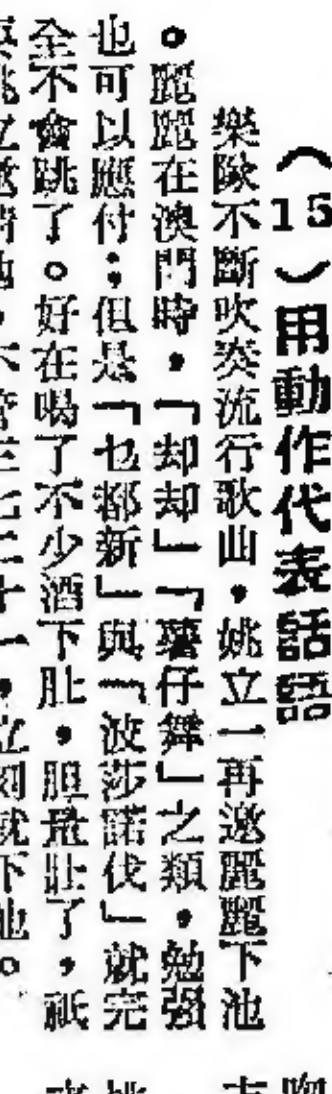 （15）用動作代表話語
樂隊不斷吹奏流行歌曲，姚立一再邀麗麗下池
。麗麗在澳門時，「却却」「薯仔舞」之類，勉强
也可以應付；但是「乜都新」與「波莎諾伐」就完
全不會跳了。好在喝了不少酒下肚，胆量壯了，祇
姚立邀請她，不管三七二十一，立刻就下池。